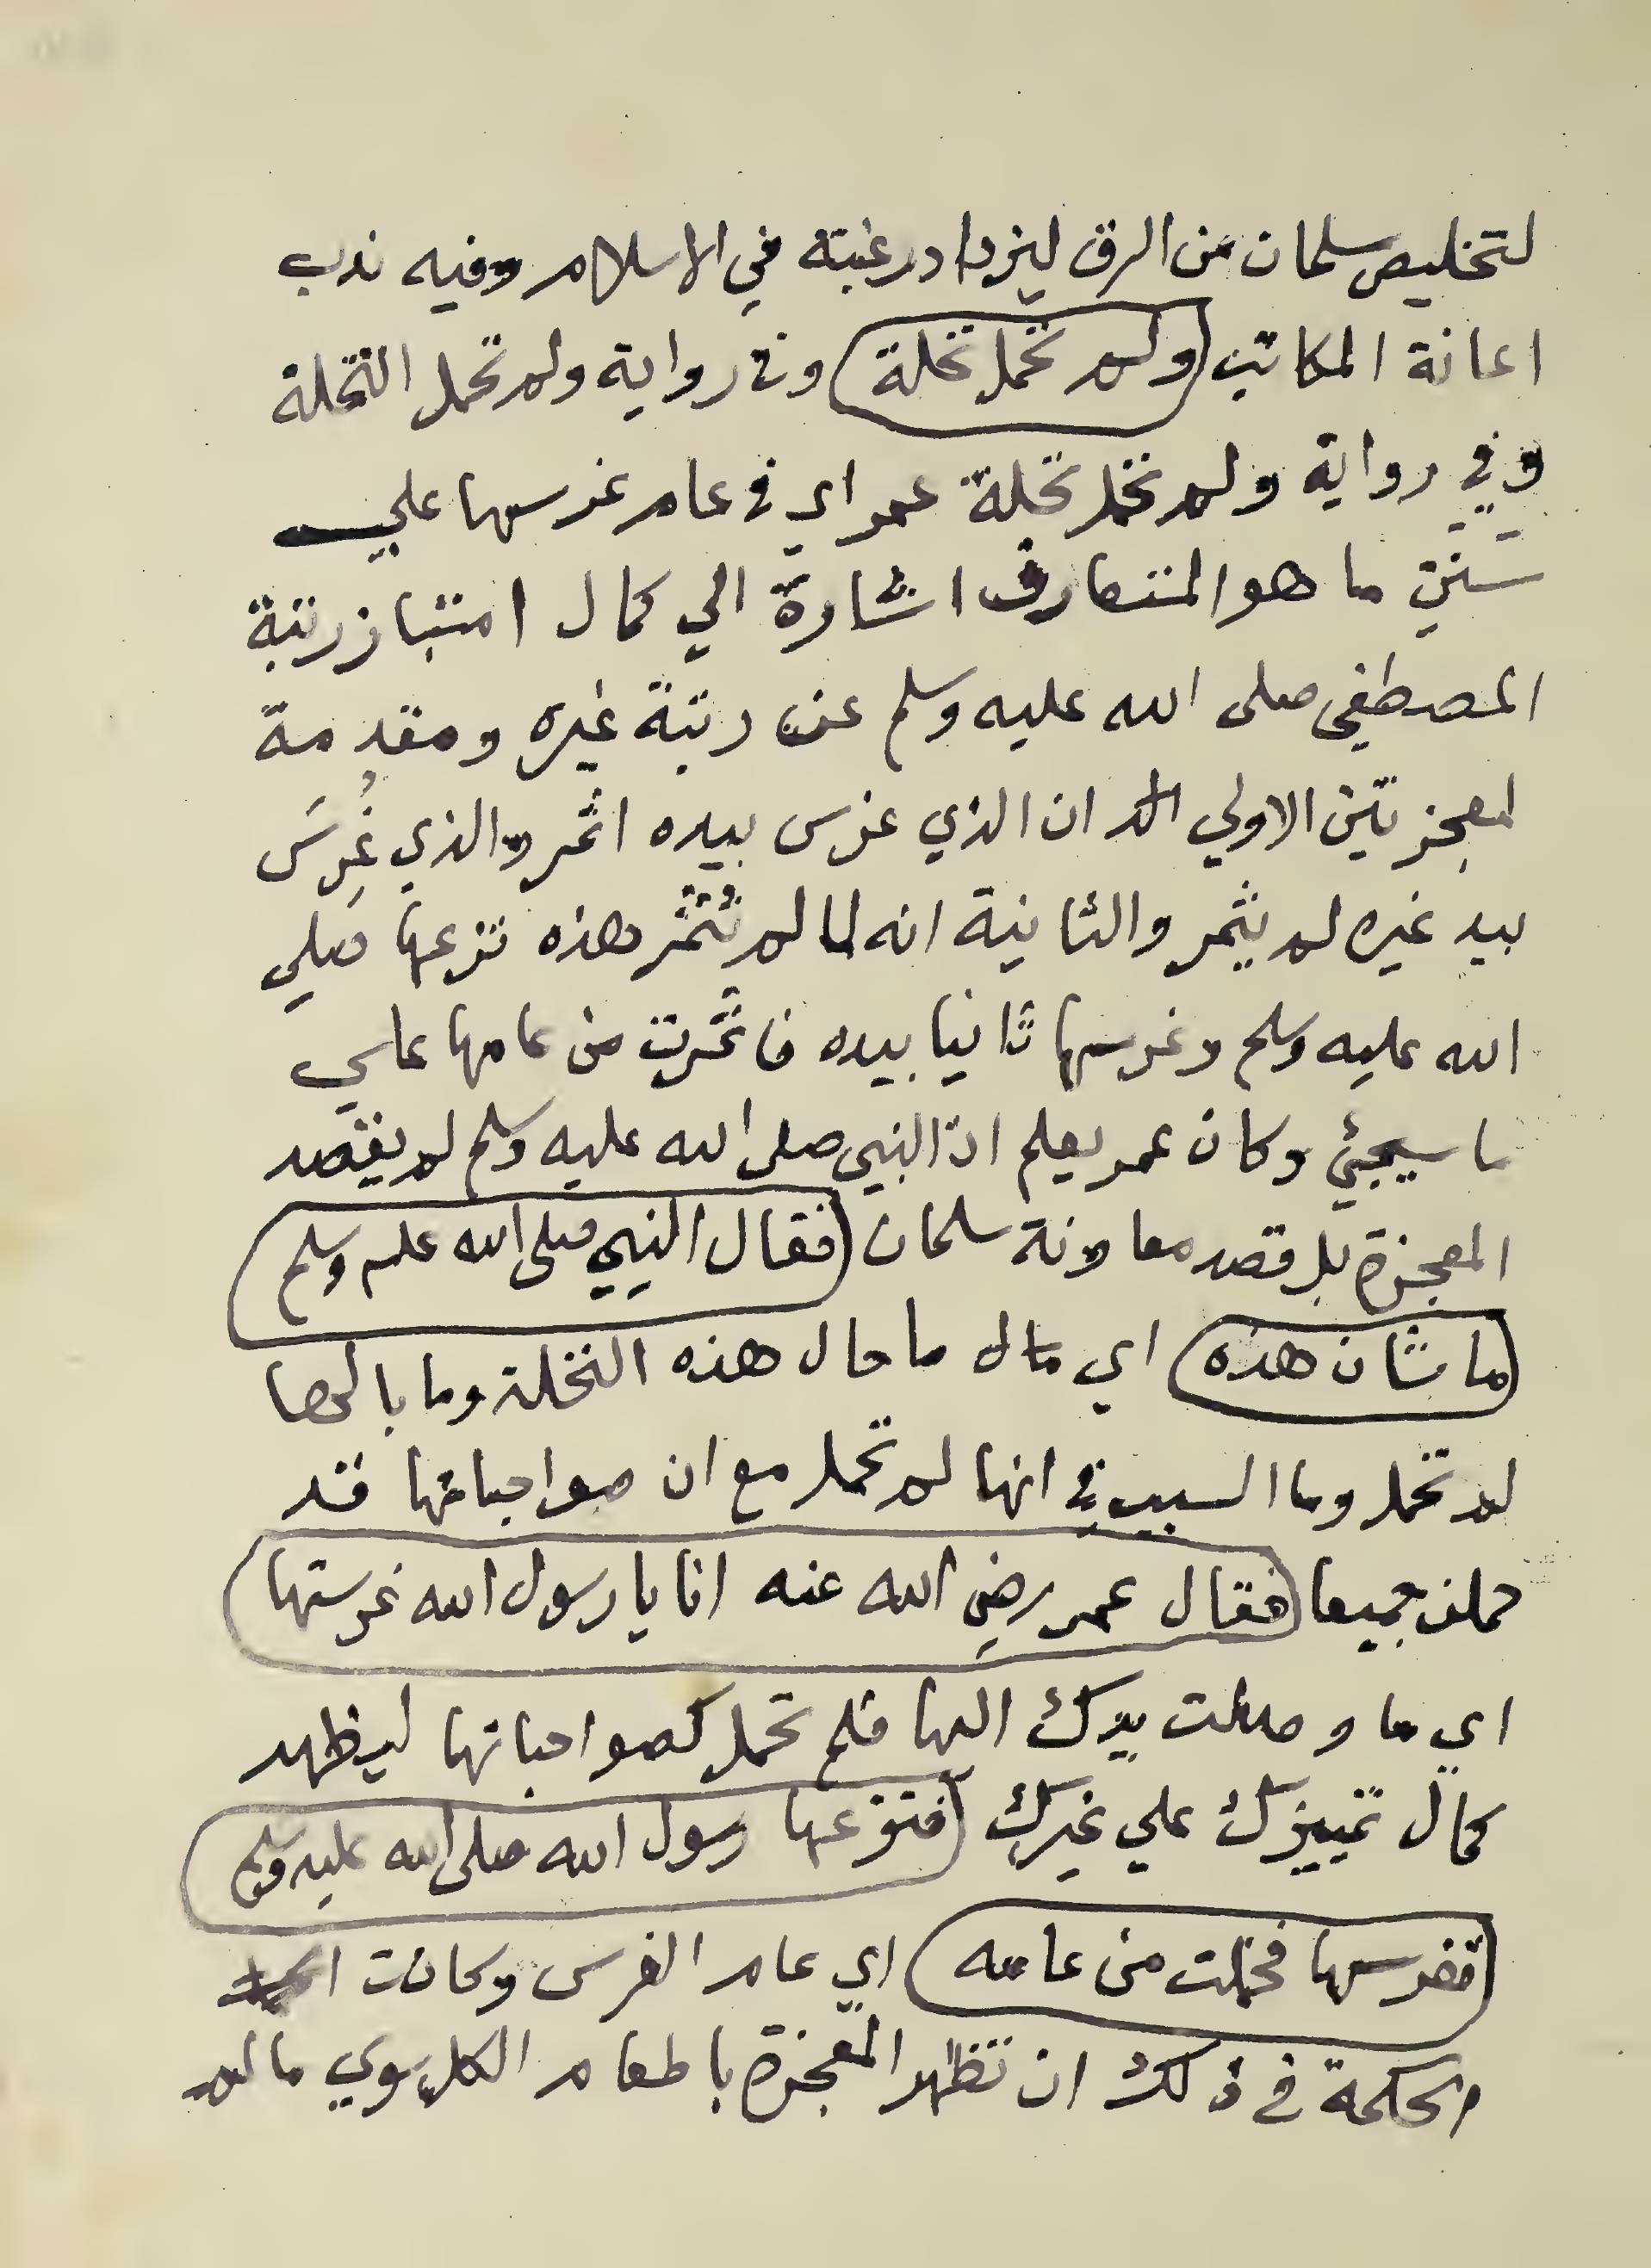 لتخليص سلمان من الرق ليزداد رغبته في الاسلام وفيه ندب
اعانة المكاتب ولم تحمل نخلة وفي رواية ولم تحمل النخلة
وفي رواية ولم تحمل نخلة عمر اي في عام غرسها علي
سنن ما هو المتعارف اشارة الي كمال امتياز رتبة
المصطفى صلى الله عليه وسلم عن رتبة غيره ومقدمة
لمعجزتين الاولي ان الذي غرس بيده اثمر والذي غُرِسَ
بيد غيره لم يثمر والثانية انه لما لم تُثمر هذه نزعها صلي
الله عليه وسلم وغرسها ثانيا بيده فاثمرت من عامها علي
ما سيجيئ وكان عمر يعلم ان النبي صلى الله عليه وسلم لم يقصد
المعجزة بل قصد معاونة سلمان فقال النبي صلى الله عليه وسلم
ما شان هذه اي ما حال هذه النخلة وما بالها
لم تحمل وما السبب في انها لم تحمل مع ان صواحباتها قد
حملن جميعا فقال عمر رضي الله عنه انا يا رسول الله غرستها
اي ما وصلت يدك اليها فلم تحمل كصواحباتها ليظهر
كمال تمييزك علي غيرك فنزعها رسول الله صلى الله عليه وسلم
فغرسها فحملت من عامه اي عام الغرس وكانت
الحكمة في ذلك ان تظهر المعجزة باطعام الكل سوي ما لم